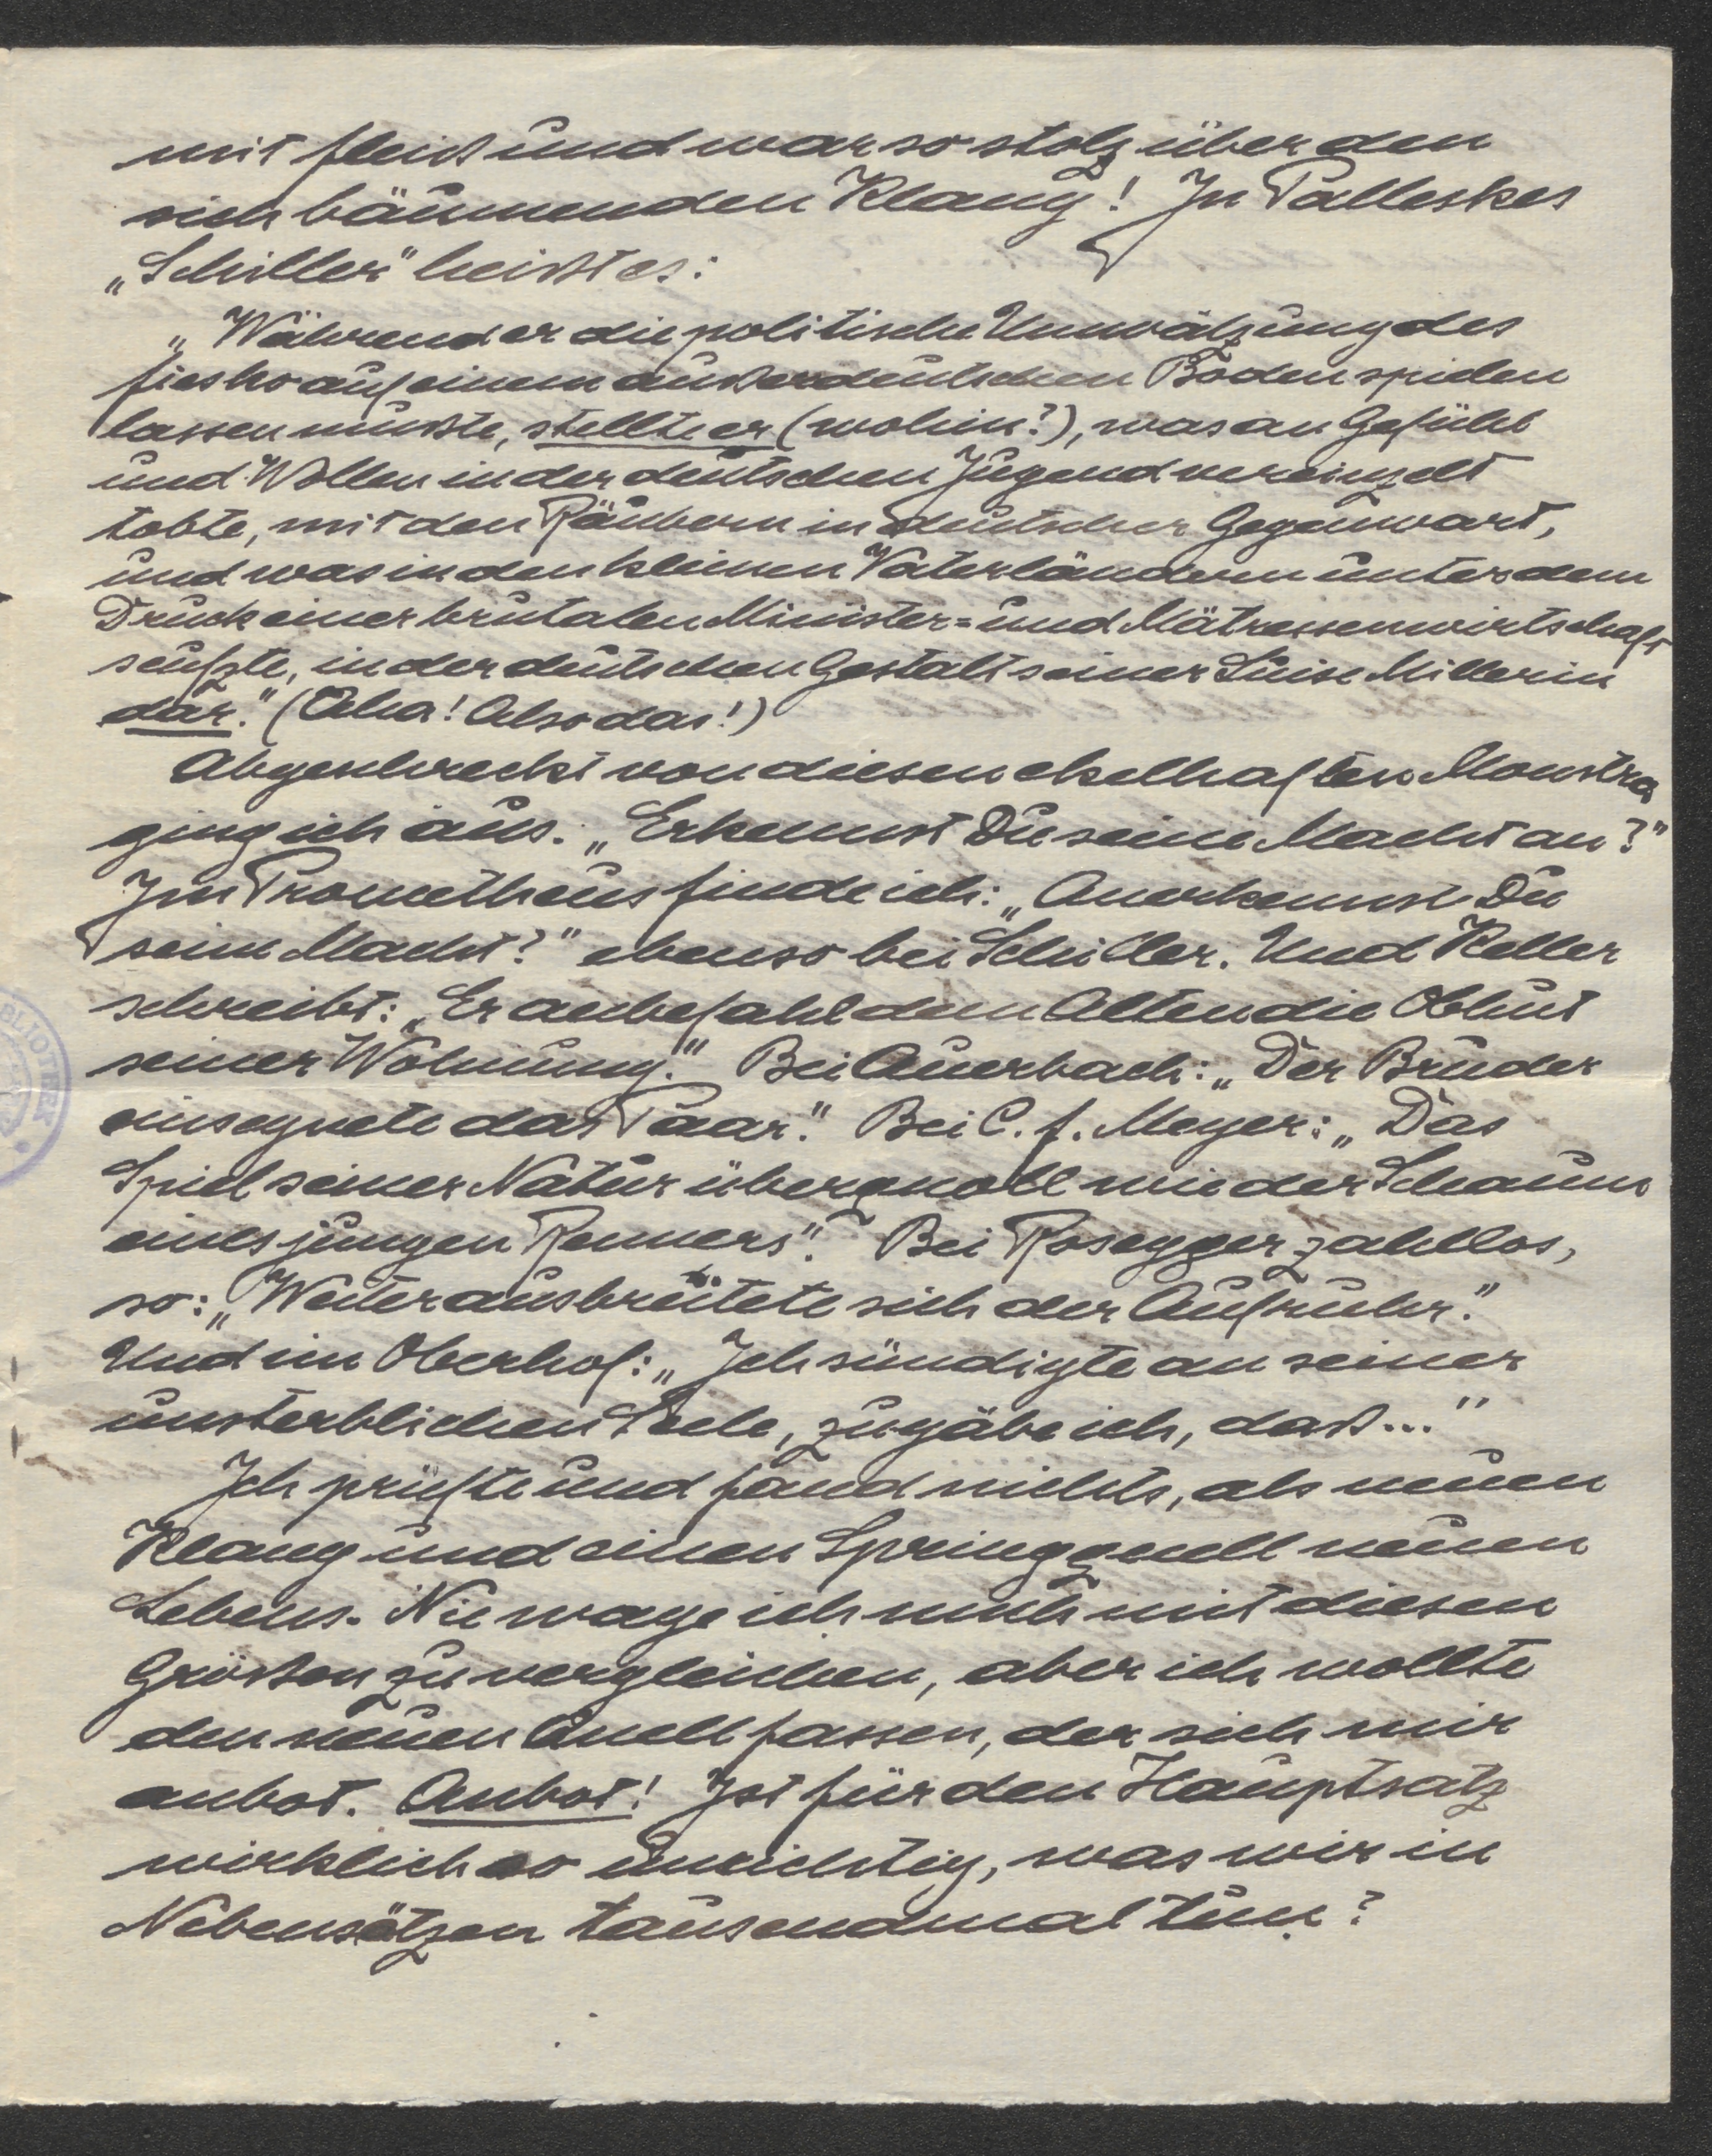 mit Fleiß und war so stolz über den
sich bäumenden Klang! In Palleskes
„Schiller“ heißt es:
„Während er die politische Umwälzung des
Fiesko auf einem außerdeutschen Boden spielen
lassen mußte, stellte er (wohin?), was an Gefühl
und Wollen in der deutschen Jugend vereinzelt
tobte, mit den Räubern in deutscher Gegenwart,
und was in den kleinen Vaterländern unter dem
Druck einer brutalen Minister= und Mätressenwirtschaft
seufzte, in der deutschen Gestalt seiner Luise Millerin
dar.“ (Aha! Also das!)
Abgeschreckt von diesen ekelhaften Monstra
ging ich aus. „Erkennst Du seine Macht an?“
Im Prometheus finde ich: „Anerkennst Du
seine Macht?“ ebenso bei Schiller. Und Keller
schreibt: „Er anbefahl dem Alten die Obhut
seiner Wohnung.“ Bei Auerbach: „Der Bruder
einsegnete das Paar.“ Bei C. F. Meyer: „Das
Spiel seiner Natur überquoll wie der Schaum
eines jungen Renners“. Bei Rosegger zahllos,
so: „Weiter ausbreitete sich der Aufruhr.“
Und im Oberhof: „Ich sündigte an seiner
unsterblichen Seele, zugäbe ich, daß...“
Ich prüfte und fand nichts, als neuen
Klang und einen Springquell neuen
Lebens. Nie wage ich mich mit diesen
Größen zu vergleichen, aber ich wollte
den neuen Quell fassen, der sich mir
anbot. Anbot! Ist für den Hauptsatz
wirklich so unrichtig, was wir in
Nebensätzen tausendmal tun?